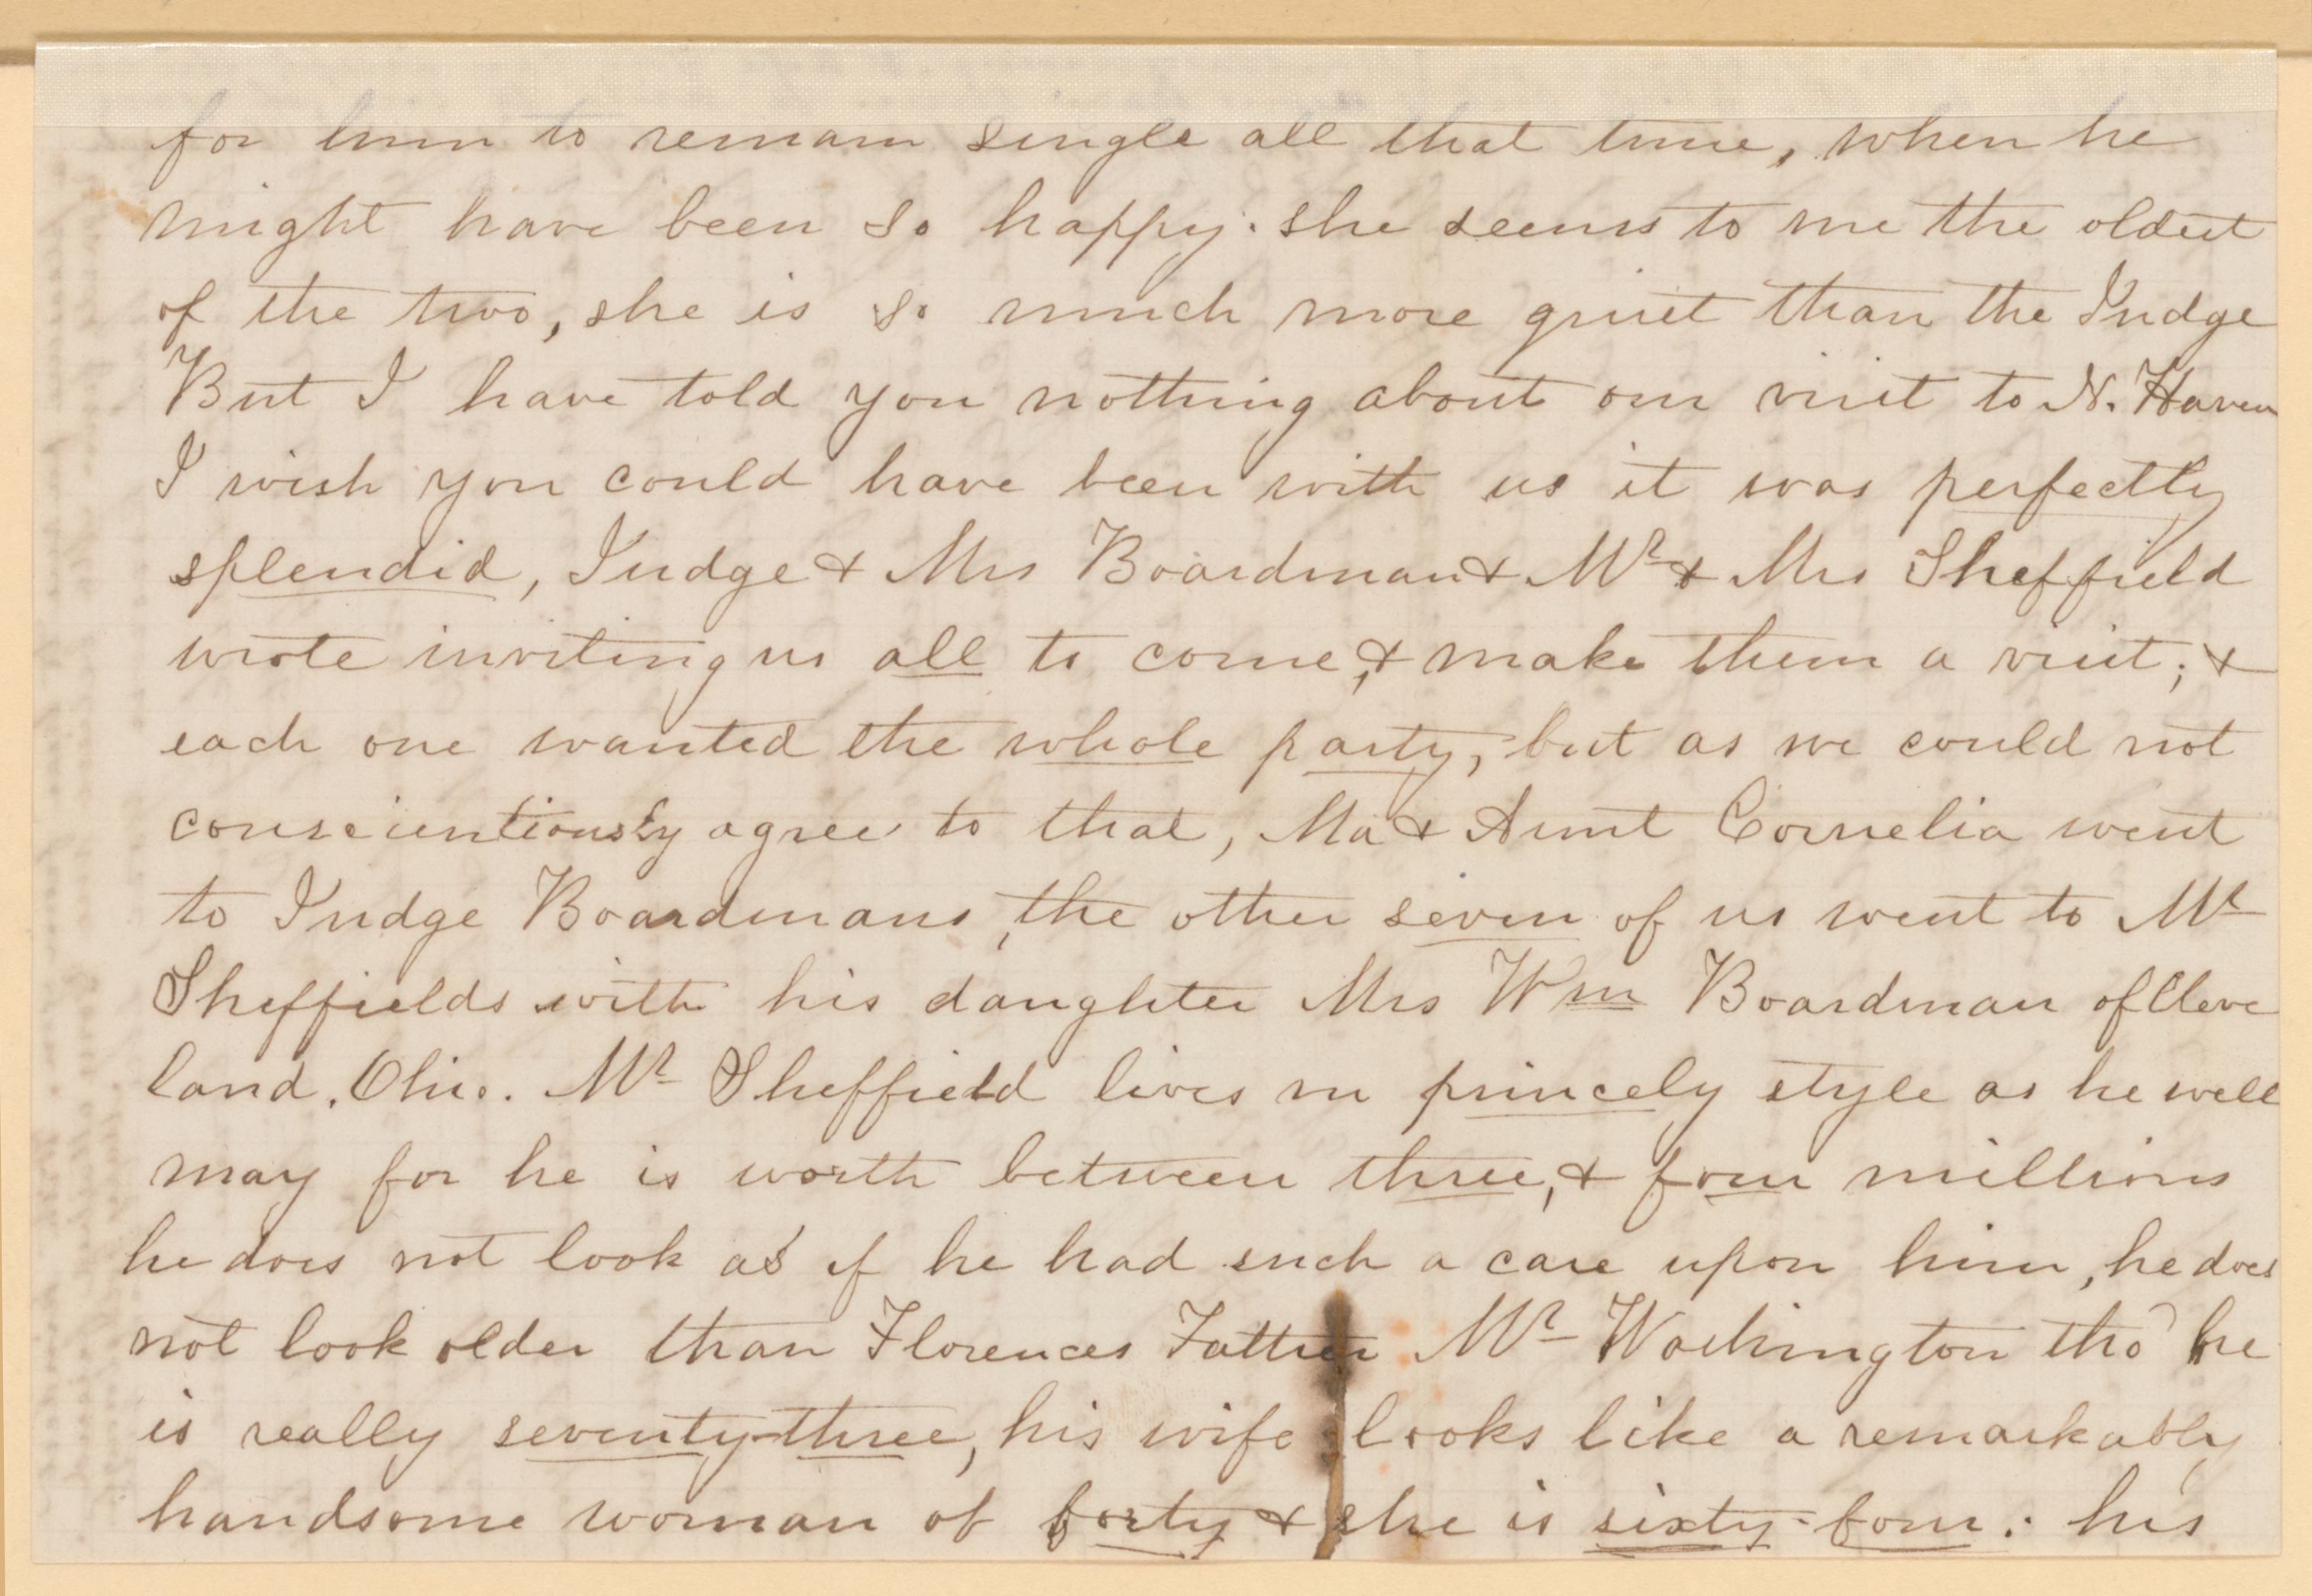 for him to remain single all that time, when he
might have been so happy. she seems to me the oldest
of the two, she is so much more quiet than the Judge
But I have told you nothing about our visit to N. Haven
I wish you could have been with us it was perfectly
splendid, Judge & Mrs Boardman & Mr & Mrs Sheffield
wrote inviting us all to come, & make them a visit; &
each one wanted the whole party, but as we could not
conscientiously agree to that, Ma & Aunt Cornelia went
to Judge Boardmans, the other seven of us went to Mr
Sheffields with his daughter Mrs Wm Boardman of Cleve
land, Ohio. Mr Sheffield lives in princely style as he well
may for he is worth between three, & four millions
he does not look as if he had such a care upon him, he does
not look older than Florences Father Mr Washington tho' he
is really seventy-three, his wife looks like a remarkably
handsome woman of forty & she is sixty-four: his